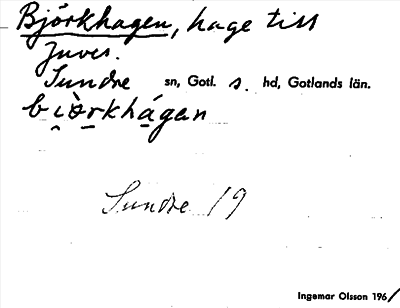 Björkhagen, hage till
Juves.
Sundre sn, Gotl. s. hd, Gotlands län.
bi̯ò̱rkhá̱gan
Sundre 19
Ingemar Olsson 1961